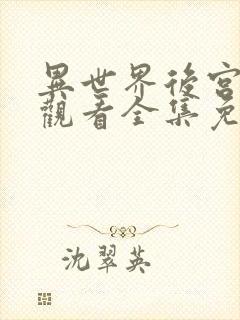 異世界後宮
觀看全集免
沈翠英